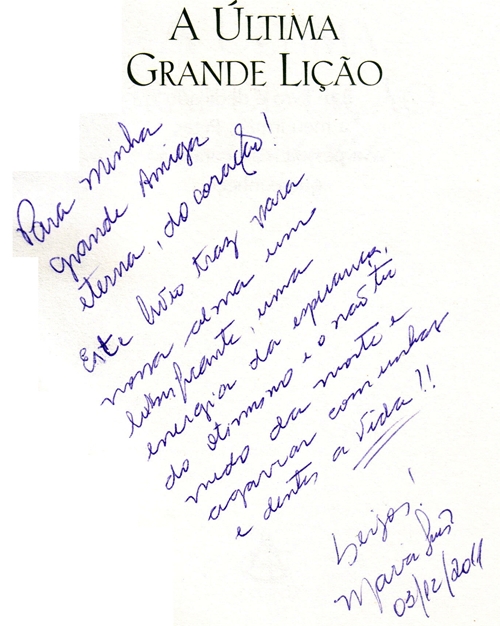 A ÚLTIMA
GRANDE LIÇÃO
Para minha
grande Amiga
eterna, do coração!
Este livro traz para
nossa alma um
lubrificante, uma
energia da esperança,
do otimismo e o não ter
medo da morte e
agarrar com unhas
e dentes a vida!!
beijos!
Maria
03/12/2011